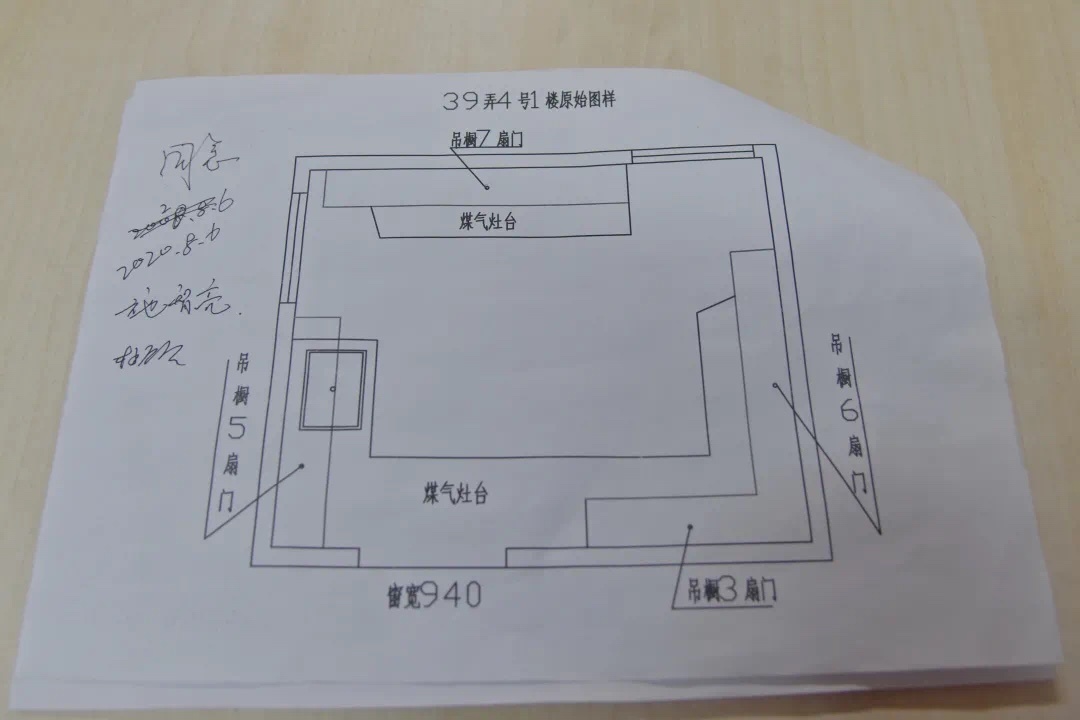 39弄4号1楼原始图样
吊橱7扇门
煤气灶台
同意
2020.8.6
吊橱5扇门
吊橱6扇门
煤气灶台
窗宽940
吊橱3扇门